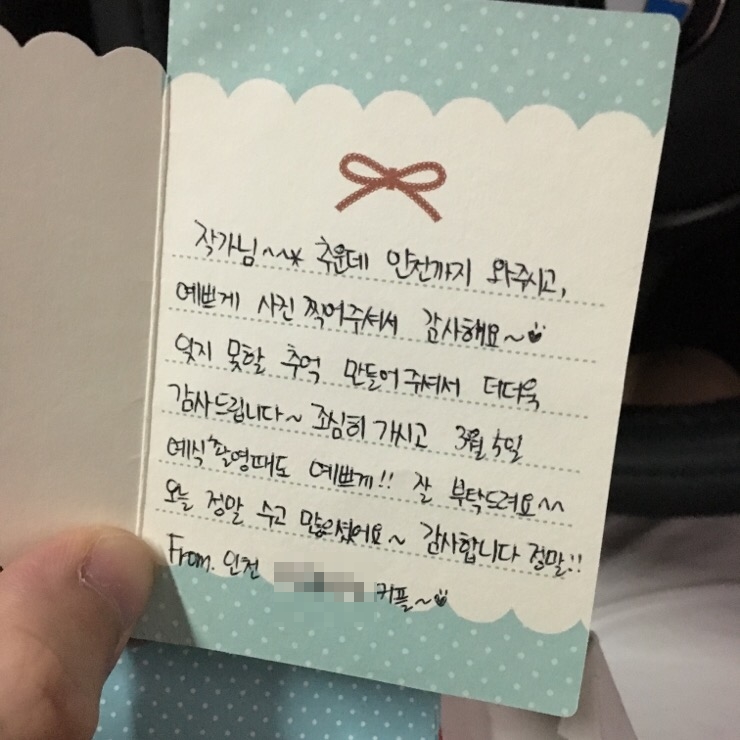 작가님~~* 추운데 인천까지 와주시고,
예쁘게 사진 찍어주셔서 감사해요~
잊지 못할 추억 만들어주셔서 더더욱
감사드립니다~ 조심히 가시고 3월 5일
예식촬영때도 예쁘게!! 잘 부탁드려요^^
오늘 정말 수고 많으셨어요~ 감사합니다 정말!!
From. 인천 커플~